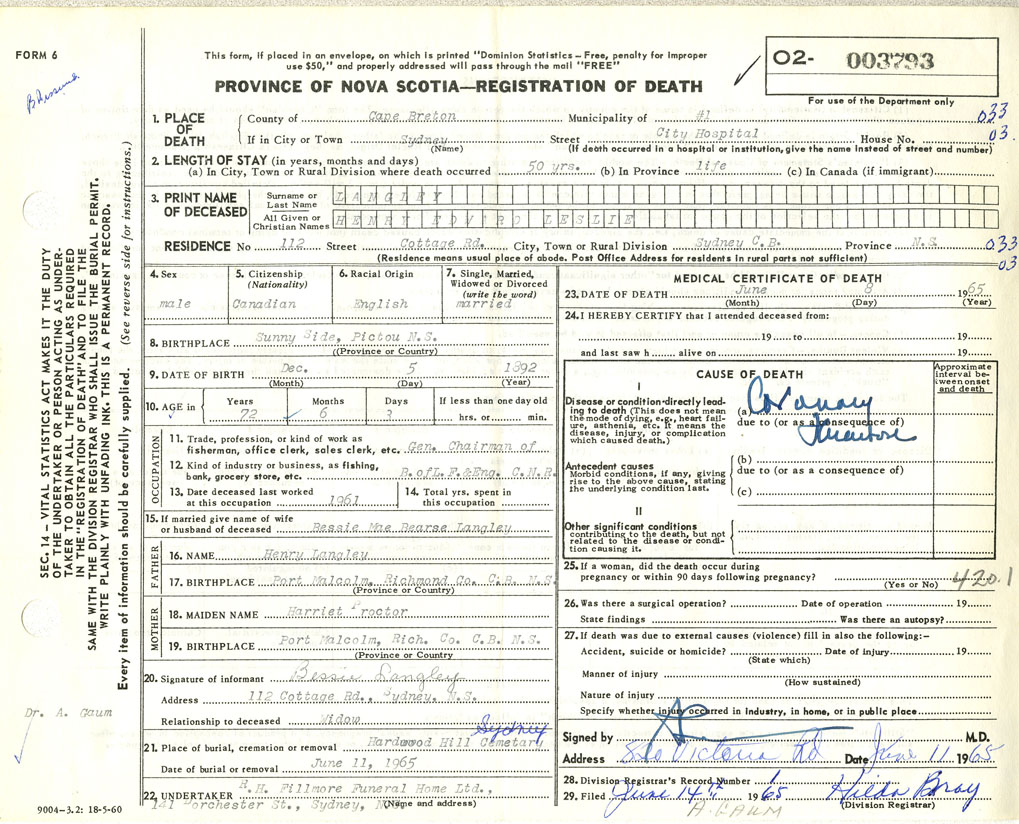 FORM 6
This form, if placed in an envelope, on which is printed "Dominion Statistics – Free, penalty for improper
use $50," and properly addressed will pass through the mail "FREE"
PROVINCE OF NOVA SCOTIA—REGISTRATION OF DEATH
02- 003793
For use of the Department only
SEC. 14 – VITAL STATISTICS ACT MAKES IT THE DUTY
OF THE UNDERTAKER OR PERSON ACTING AS UNDER-
TAKER TO OBTAIN ALL THE PARTICULARS REQUIRED
IN THE "REGISTRATION OF DEATH" AND TO FILE THE
SAME WITH THE DIVISION REGISTRAR WHO SHALL ISSUE THE BURIAL PERMIT.
WRITE PLAINLY WITH UNFADING INK. THIS IS A PERMANENT RECORD.
Every item of information should be carefully supplied. (See reverse side for instructions.)
Dr. A. Gaum
9004-3.2: 18-5-60
1. PLACE OF DEATH
County of Cape Breton Municipality of #1 033
If in City or Town Sydney Street City Hospital House No. 03.
(Name) (If death occurred in a hospital or institution, give the name instead of street and number)
2. LENGTH OF STAY (in years, months and days)
(a) In City, Town or Rural Division where death occurred 50 yrs. (b) In Province life (c) In Canada (if immigrant)
3. PRINT NAME OF DECEASED
Surname or Last Name LANGLEY
All Given or Christian Names HENRY EDWIRD LESLIE
RESIDENCE No 112 Street Cottage Rd. City, Town or Rural Division Sydney C.B. Province N.S. 033
(Residence means usual place of abode. Post Office Address for residents in rural parts not sufficient) 03
4. Sex male
5. Citizenship (Nationality) Canadian
6. Racial Origin English
7. Single, Married, Widowed or Divorced (write the word) married
8. BIRTHPLACE Sunny Side, Pictou N.S.
((Province or Country)
9. DATE OF BIRTH Dec. 5 1892
(Month) (Day) (Year)
10. AGE in Years Months Days If less than one day old
72 6 3 hrs. or min.
OCCUPATION
11. Trade, profession, or kind of work as
fisherman, office clerk, sales clerk, etc. Gen. Chairman of
12. Kind of industry or business, as fishing,
bank, grocery store, etc. B.ofL.F.&Eng. C.N.R.
13. Date deceased last worked
at this occupation 1961
14. Total yrs. spent in
this occupation
15. If married give name of wife
or husband of deceased Bessie Mae Bearse Langley
FATHER
16. NAME Henry Langley
17. BIRTHPLACE Port Malcolm, Richmond Co. C.B. N.S.
(Province or Country)
MOTHER
18. MAIDEN NAME Harriet Proctor
19. BIRTHPLACE Port Malcolm, Rich. Co. C.B. N.S.
(Province or Country
20. Signature of informant Bessie Langley
Address 112 Cottage Rd., Sydney. N.S.
Relationship to deceased Widow
Sydney
21. Place of burial, cremation or removal Hardwood Hill Cemetary
Date of burial or removal June 11, 1965
22. UNDERTAKER R.H. Fillmore Funeral Home Ltd.,
141 Dorchester St., Sydney, N.S.
(Name and address)
MEDICAL CERTIFICATE OF DEATH
23. DATE OF DEATH June 8 1965
(Month) (Day) (Year)
24. I HEREBY CERTIFY that I attended deceased from:
19 to 19
and last saw h alive on 19
CAUSE OF DEATH
Approximate interval between onset and death
I
Disease or condition directly lead-
ing to death (This does not mean
the mode of dying, e.g., heart fail-
ure, asthenia, etc. It means the
disease, injury, or complication
which caused death.)
(a) Coronary
due to (or as a consequence of)
Antecedent causes
Morbid conditions, if any, giving
rise to the above cause, stating
the underlying condition last.
(b)
due to (or as a consequence of)
(c)
II
Other significant conditions
contributing to the death, but not
related to the disease or condi-
tion causing it.
25. If a woman, did the death occur during
pregnancy or within 90 days following pregnancy?
(Yes or No)
420.1
26. Was there a surgical operation? Date of operation 19
State findings Was there an autopsy?
27. If death was due to external causes (violence) fill in also the following:–
Accident, suicide or homicide? Date of injury 19
(State which)
Manner of injury
(How sustained)
Nature of injury
Specify whether injury occurred in industry, in home, or in public place
Signed by M.D.
Address Victoria Rd Date June 11 1965
28. Division Registrar's Record Number 1
29. Filed June 14th 1965 Hilda Bray
(Division Registrar)
A. GAUM